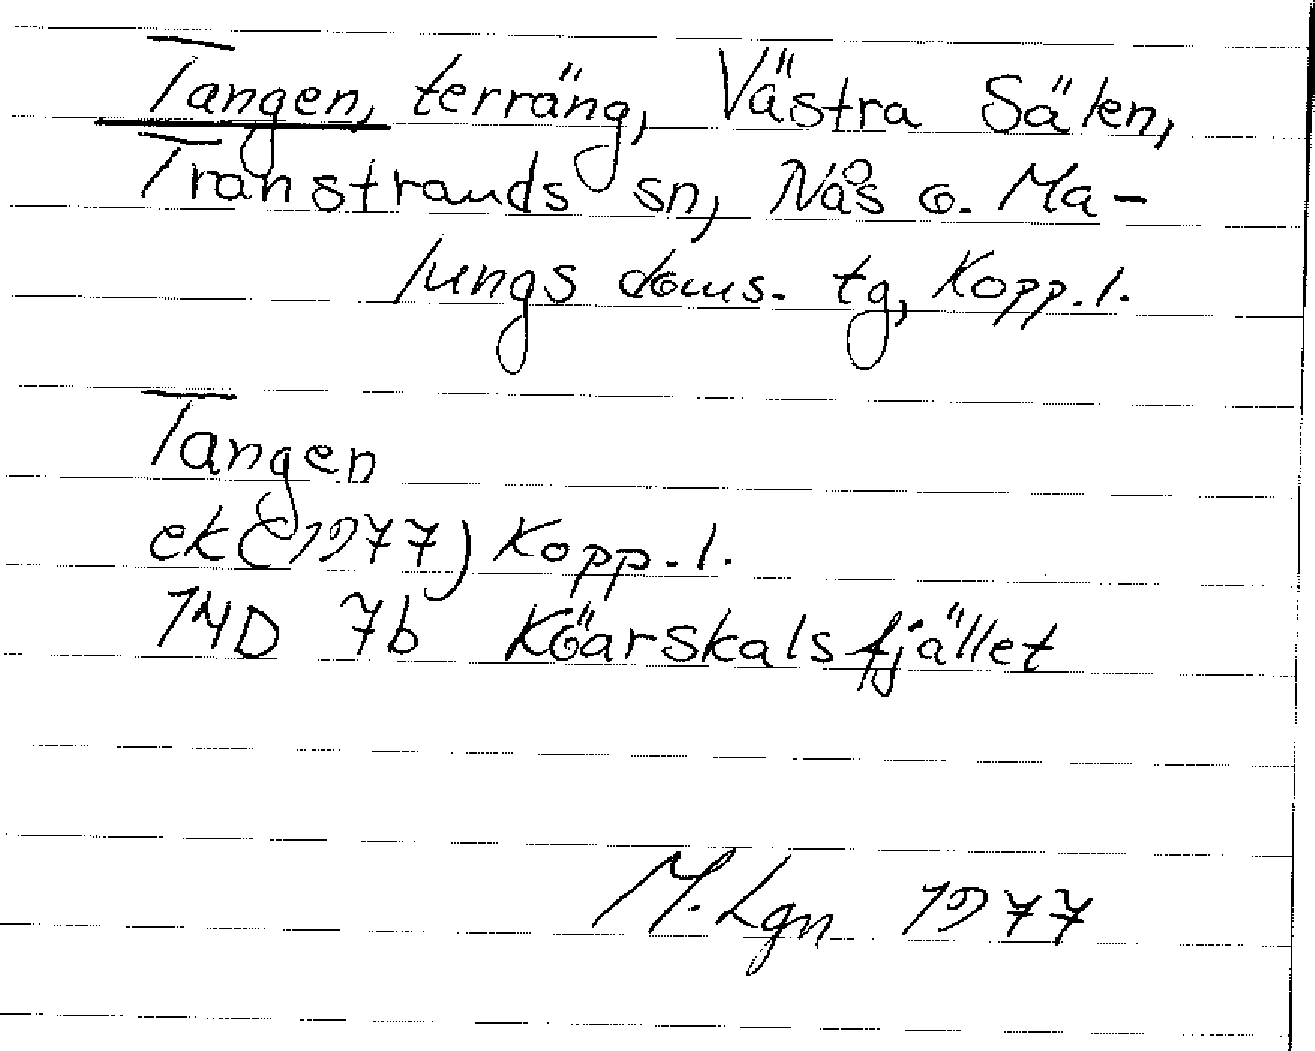 Tangen, terräng, Västra Sälen,
Transtrands sn, Nås o. Ma-
lungs doms. tg, Kopp. l.
Tangen
ek (1977) Kopp. l.
14D 7b Köarskalsfjället
M. Lgn 1977